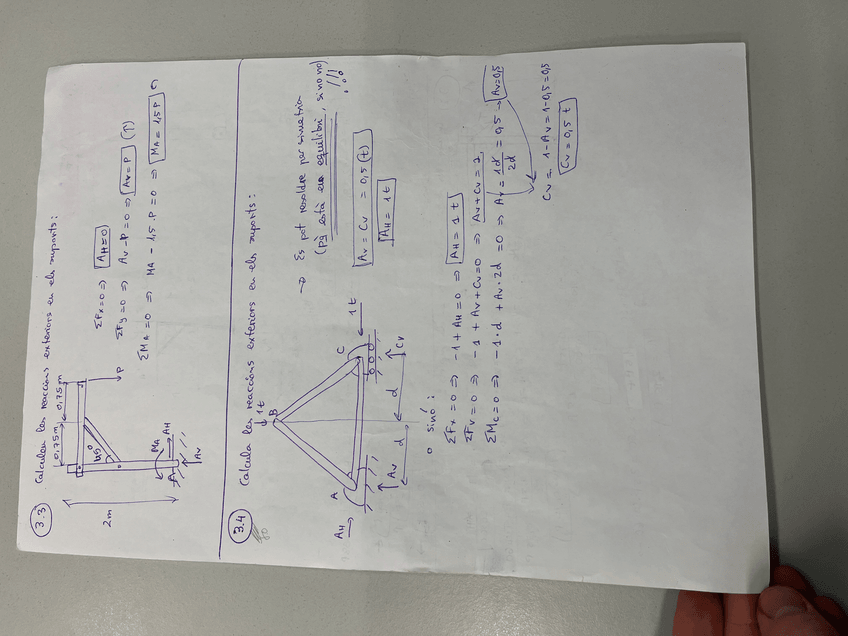 3.3 Calculeu les reaccions exteriors en els suports:
0,75m 0,75m
P
45°
2m
MA
AH
A
AV
ΣFx=0 ⇒ AH=0
ΣFy=0 ⇒ AV-P=0 ⇒ AV=P (↑)
ΣMA=0 ⇒ MA - 1,5·P=0 ⇒ MA=1,5P
3.4 Calcula les reaccions exteriors en els suports:
1t
B
A
C
1t
AH
AV
CV
d
d
→ Es pot resoldre per simetria
(pq està en equilibri, sino no)
!!!
AV = CV = 0,5 (t)
AH = 1t
o sinó:
ΣFx=0 ⇒ -1+AH=0 ⇒ AH=1t
ΣFv=0 ⇒ -1+AV+CV=0 ⇒ AV+CV=1
ΣMc=0 ⇒ -1·d+AV·2d=0 ⇒ AV=1d/2d=0,5 → AV=0,5
CV = 1-AV=1-0,5=0,5
CV=0,5 t